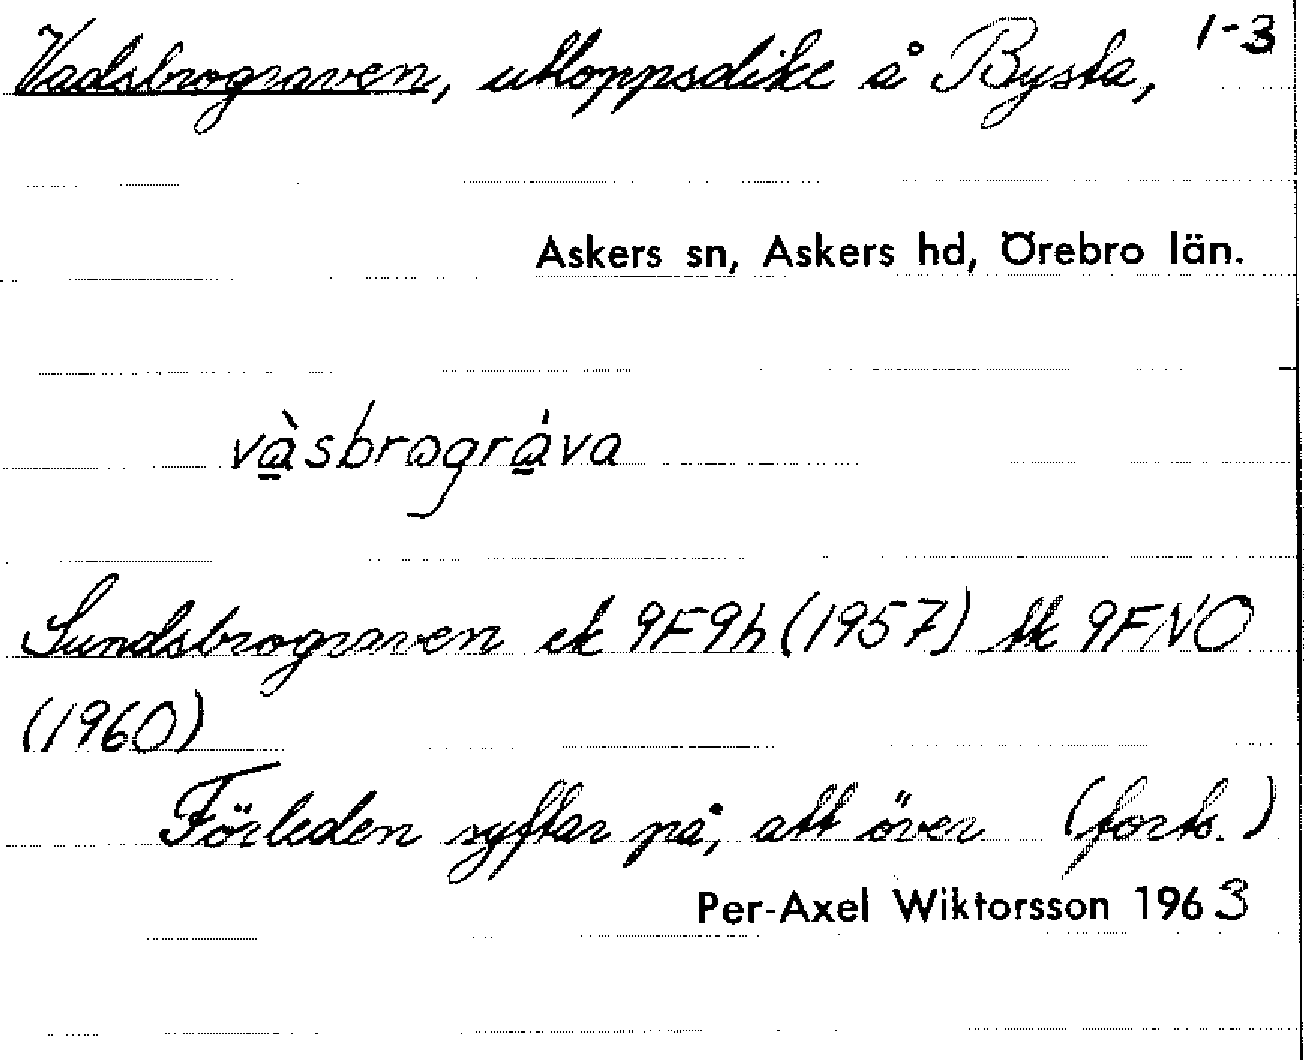 Vadsbrograven, utloppsdike å Bysta, 1-3
Askers sn, Askers hd, Örebro län.
và̱sbrográ̱va
Sundsbrograven ek 9F9h (1957) tk 9FNO
(1960)
Förleden syftar på, att över (forts.)
Per-Axel Wiktorsson 1963